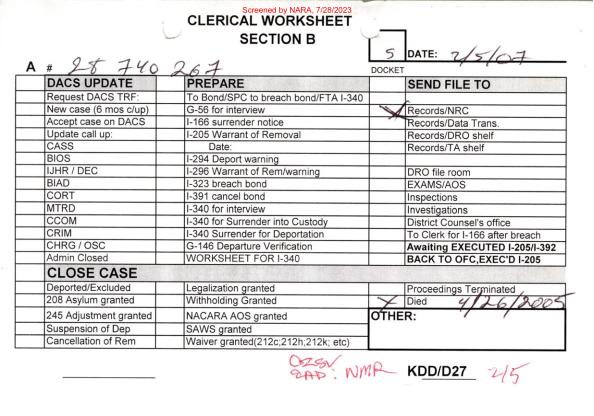 Screened by NARA, 7/28/2023
CLERICAL WORKSHEET
SECTION B
5 DATE: 2/5/07
A # 28 740 267 DOCKET
DACS UPDATE PREPARE SEND FILE TO
Request DACS TRF: To Bond/SPC to breach bond/FTA I-340
New case (6 mos c/up) G-56 for interview X Records/NRC
Accept case on DACS I-166 surrender notice Records/Data Trans.
Update call up: I-205 Warrant of Removal Records/DRO shelf
CASS Date: Records/TA shelf
BIOS I-294 Deport warning
IJHR / DEC I-296 Warrant of Rem/warning DRO file room
BIAD I-323 breach bond EXAMS/AOS
CORT I-391 cancel bond Inspections
MTRD I-340 for interview Investigations
CCOM I-340 for Surrender into Custody District Counsel's office
CRIM I-340 Surrender for Deportation To Clerk for I-166 after breach
CHRG / OSC G-146 Departure Verification Awaiting EXECUTED I-205/I-392
Admin Closed WORKSHEET FOR I-340 BACK TO OFC,EXEC'D I-205
CLOSE CASE
Deported/Excluded Legalization granted Proceedings Terminated
208 Asylum granted Withholding Granted X Died 4/26/2005
245 Adjustment granted NACARA AOS granted OTHER:
Suspension of Dep SAWS granted
Cancellation of Rem Waiver granted(212c;212h;212k; etc)
NMR KDD/D27 2/5